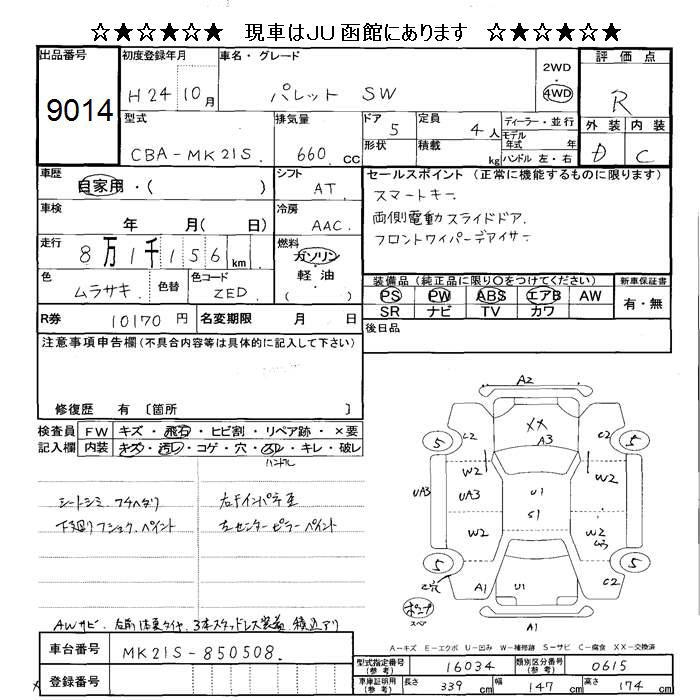 ☆★☆★☆★ 現車はJU函館にあります ☆★☆★☆★
出品番号 9014
初度登録年月 H24 10月
車名・グレード パレット SW
2WD 4WD
評価点 R
外装 D 内装 C
型式 CBA-MK21S.
排気量 660. cc
ドア 5
定員 4人
形状
積載 kg
ディーラー・並行
モデル年式 年
ハンドル 左・右
車歴 自家用・( )
シフト AT.
車検 年 月( 日)
冷房 AAC.
走行 8万1千156km
燃料 ガソリン 軽油 ( )
色 ムラサキ. 色替
色コード ZED.
R券 10170円
名変期限 月 日
セールスポイント (正常に機能するものに限ります)
スマートキー.
両側電動スライドドア.
フロントワイパーデアイサー.
装備品(純正品に限り○をつけてください)
PS PW ABS エアB AW
SR ナビ TV カワ
新車保証書 有・無
後日品
注意事項申告欄(不具合内容等は具体的に記入して下さい)
修復歴 有 〔箇所 〕
検査員記入欄
FW キズ・飛石・ヒビ割・リペア跡・×要
内装 キズ・汚レ・コゲ・穴・スレ・キレ・破レ
ハンドル
シートシミ.
右インパチ
ペイント
左センターピラーペイント
AWサビ.
車台番号 MK21S-850508.
登録番号
A2
XX
A3
5 C2 C2 5
W2 W2
UA3 UA3 U1 A3
S1
W2 W2
5 5
A1 U1 C2
A1
A-キズ E-エクボ U-凹み W-補修跡 S-サビ C-腐食 XX-交換済
型式指定番号(参考) 16034
類別区分番号(参考) 0615
車庫証明用(参考) 長さ 339cm 幅 147cm 高さ 174cm